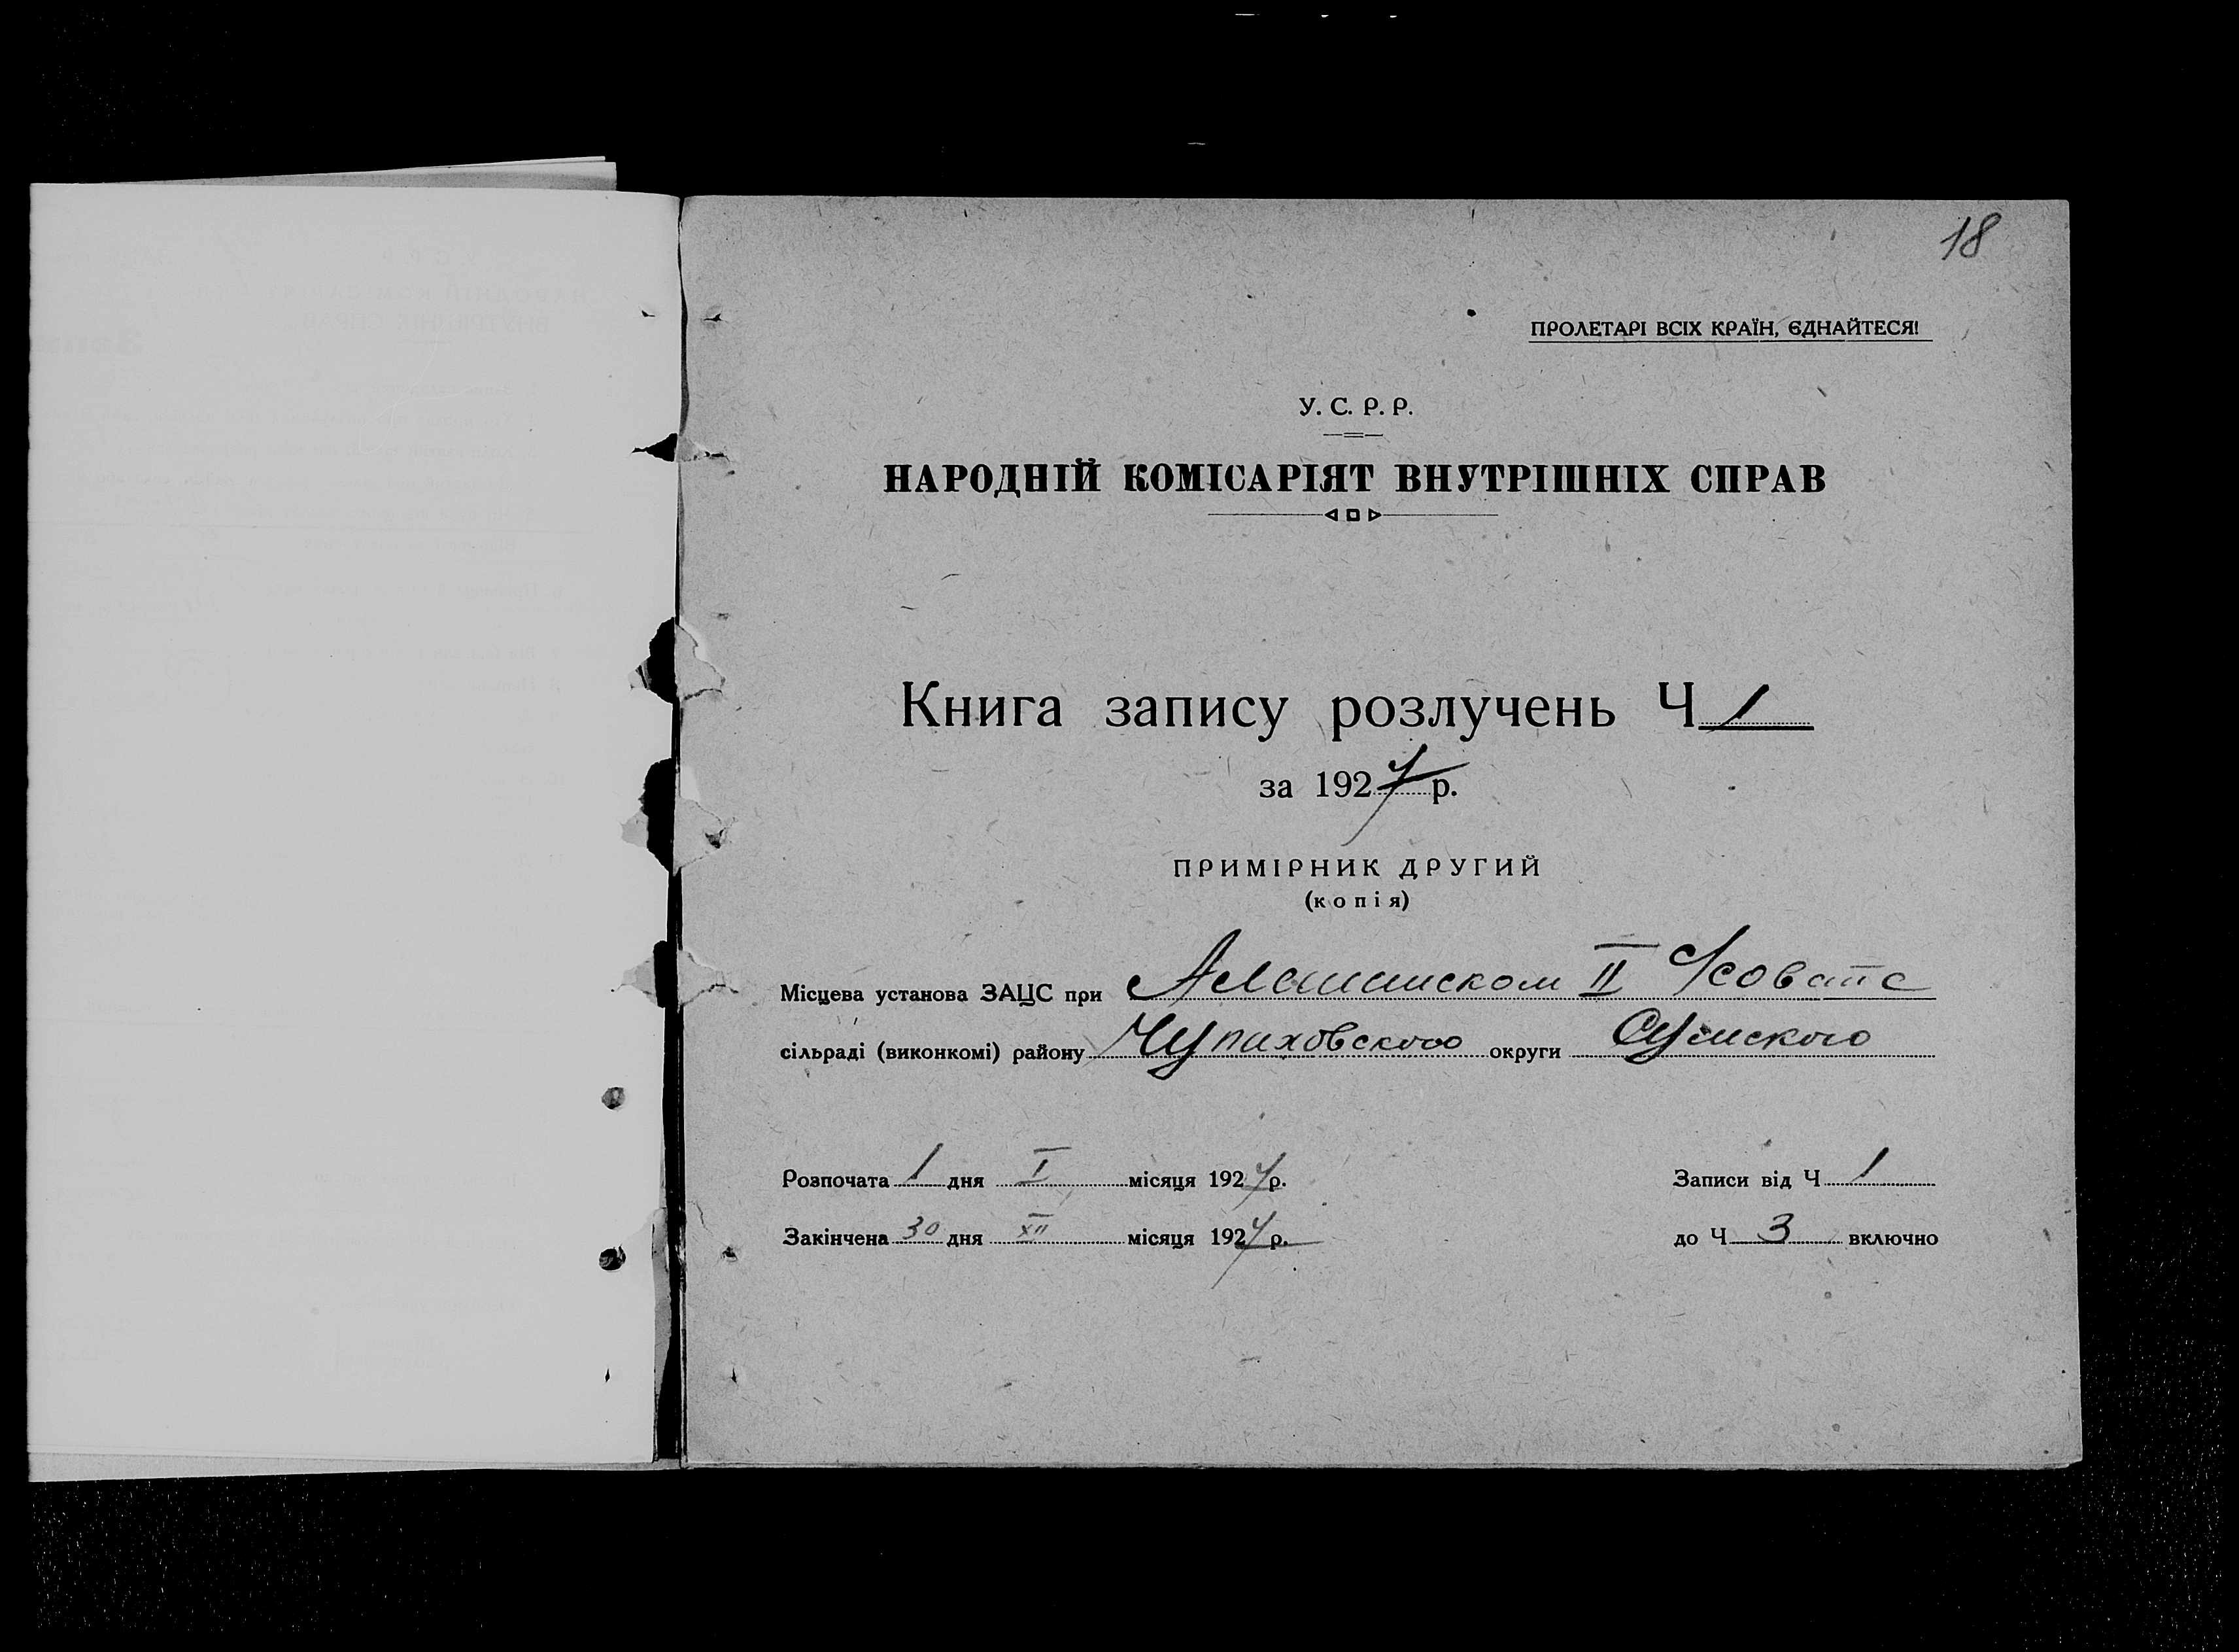 18
ПРОЛЕТАРІ ВСІХ КРАЇН, ЄДНАЙТЕСЯ!
У. С. Р. Р.
НАРОДНІЙ КОМІСАРІЯТ ВНУТРІШНІХ СПРАВ
Книга запису розлучень Ч 1
за 1927 р.
ПРИМІРНИК ДРУГИЙ
(копія)
Місцева установа ЗАЦС при II
сільраді (виконкомі) району Чупаховского округи Сумского
Розпочата 1 дня I місяця 1927 р. Записи від Ч 1
Закінчена 30 дня XII місяця 1927 р. до Ч 3 включно